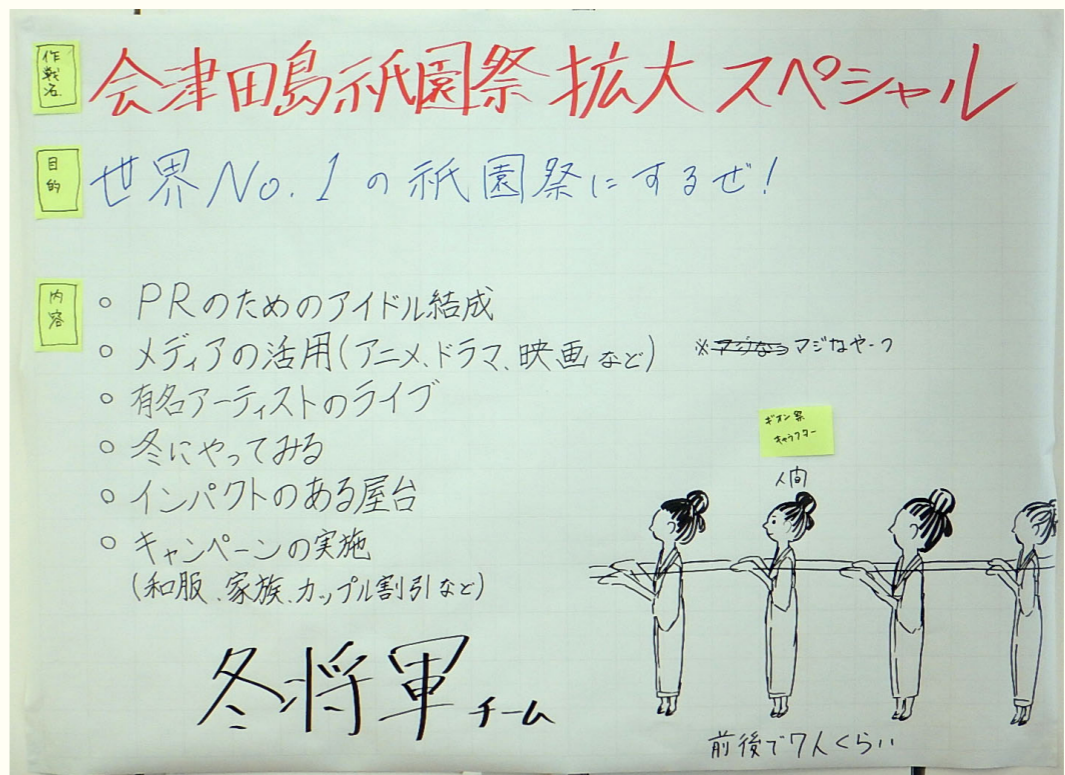 作戦名
会津田島祇園祭 拡大 スペシャル
目的
世界No.1の祇園祭にするぜ!
内容
○ PRのためのアイドル結成
○ メディアの活用(アニメ、ドラマ、映画など)
※マジなやーつ
○ 有名アーティストのライブ
○ 冬にやってみる
○ インパクトのある屋台
○ キャンペーンの実施
(和服、家族、カップル割引など)
ギオン祭
キャラクター
人間
冬将軍チーム
前後で7人くらい